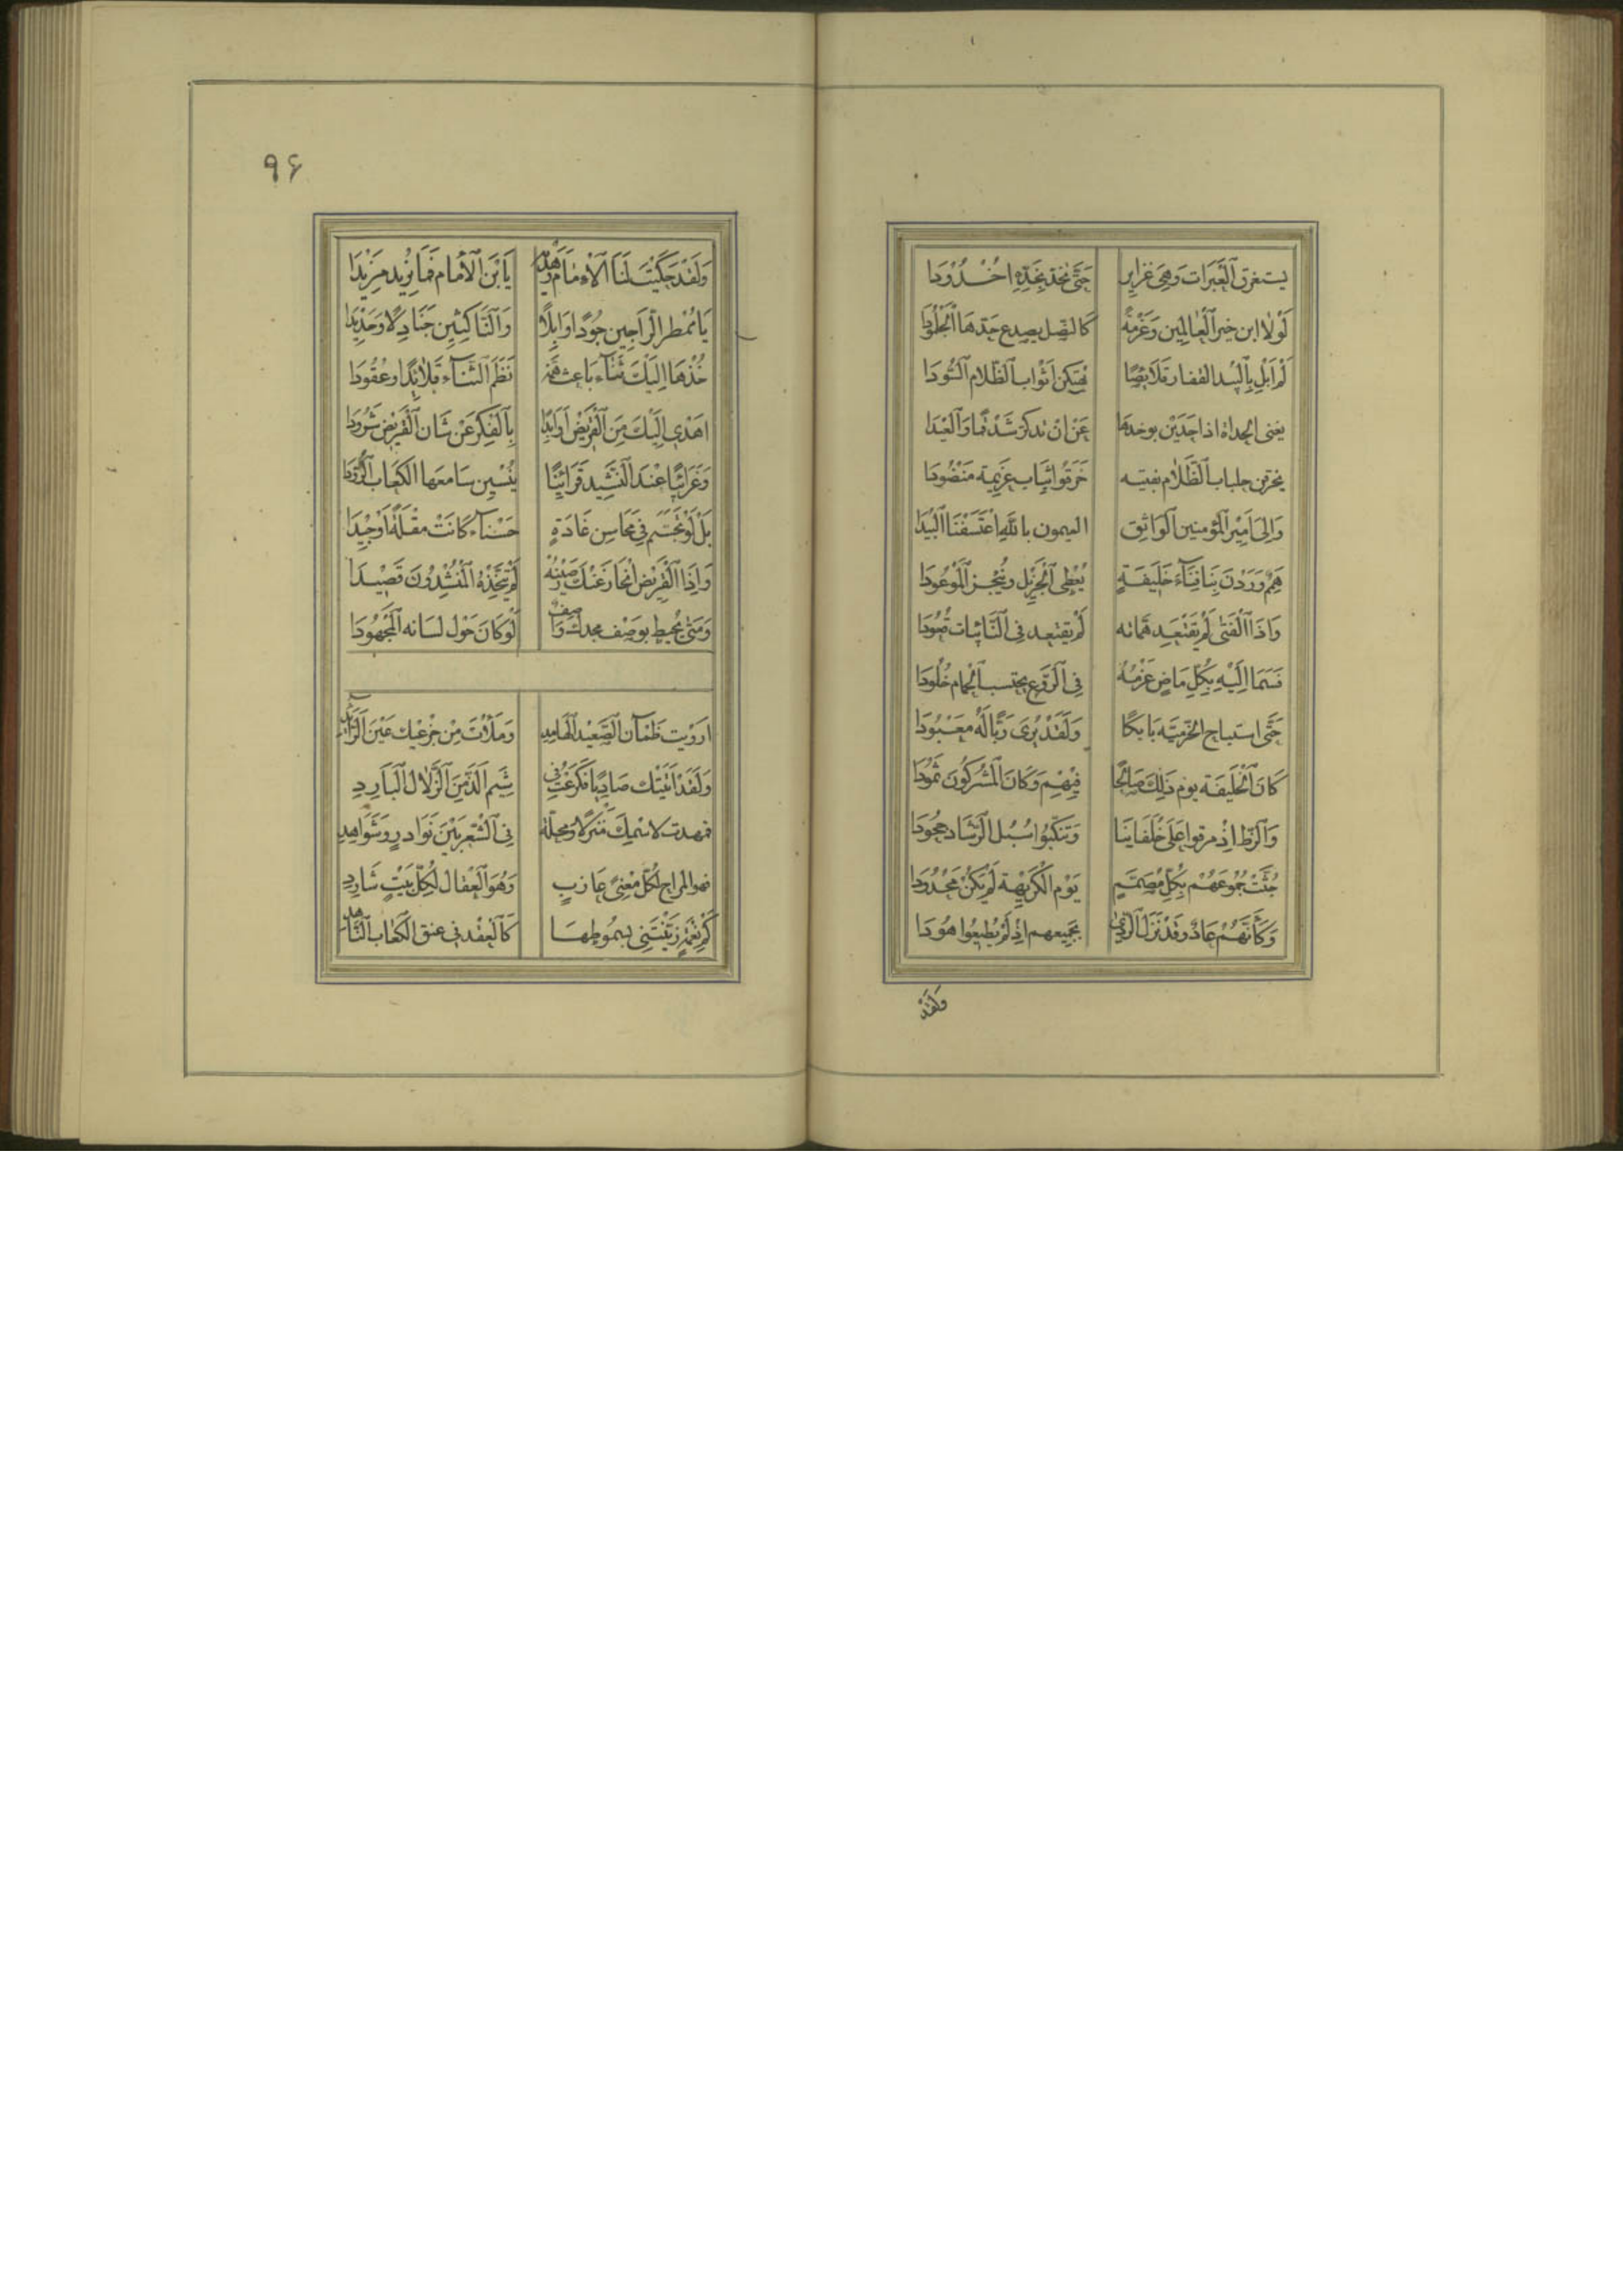 يستغرق العبرات وهي غزاير حتى تخد بخده اخدودا
لولا ابن خير العالمين وعزمة كالنصل يصدع حدها الجلمودا
لم ابل بالبيد القفار قلائصا تهتكن اثواب الظلام السودا
يغنى الحداة اذا حدين بوخدها عن ان تذكر شدقما والعيدا
يخرقن جلباب الظلام بفتيه خرقوا ثياب عزيمة منضودا
والى امير المؤمنين الواثق الميمون بالله اعتسفنا البيدا
همم وردن بنا فناء خليفة يعطى الجزيل وينجز الموعودا
واذا الفتى لم يقتعد هماته لم يقتعد في النائبات قعودا
فسما اليه بكل ماض عزمه في الروع يحتسب الحمام خلودا
حتى استباح الخرمية بابكا ولقد يرى ربا له معبودا
كان الخليفة يوم ذلك صالحا فيهم وكان المشركون ثمودا
والزط اذ مرقوا على خلفائنا وتنكبوا سبل الرشاد جحودا
جثت جموعهم بكل مصمم يوم الكريهة لم يكن مجدودا
وكأنهم عاد وقد نزل الردى بجميعهم اذ لم يطيعوا هودا
ولقد
٩٤
ولقد حكيت لنا الامام وهديه يا بن الامام فما نزيد مزيدا
يا ممطر الراجين جودا وابلا والناكثين جنادلا وحديدا
خذها اليك ثناء باعث نظم الثناء قلائدا وعقودا
اهدى اليك من القريض اوابدا بالفكر عن شان القريض شرودا
وغرائبا عند النشيد قرائنا ينسين سامعها الكعاب الرودا
بل لو تجسم في محاسن غادة حسناء كانت مقلة او جيدا
واذا القريض انحاز عنك صيته لم تتخذه المنشدون قصيدا
ومتى يحيط بوصف مجدك واصف لو كان حول لسانه المجهودا
ارويت ظمآن الصعيد الهامد وملأت من جزعيك عين الرائد
ولقد اتيتك صاديا فكرعت في شيم الذ من الزلال البارد
فمهدت لاسمك منزلا ومحلة في الشعر بين نوادر وشواهد
فهو المراح لكل معنى عازب وهو العقال لكل بيت شارد
كم نعمة زينتني بسموطها كالعقد في عنق الكعاب الناهد